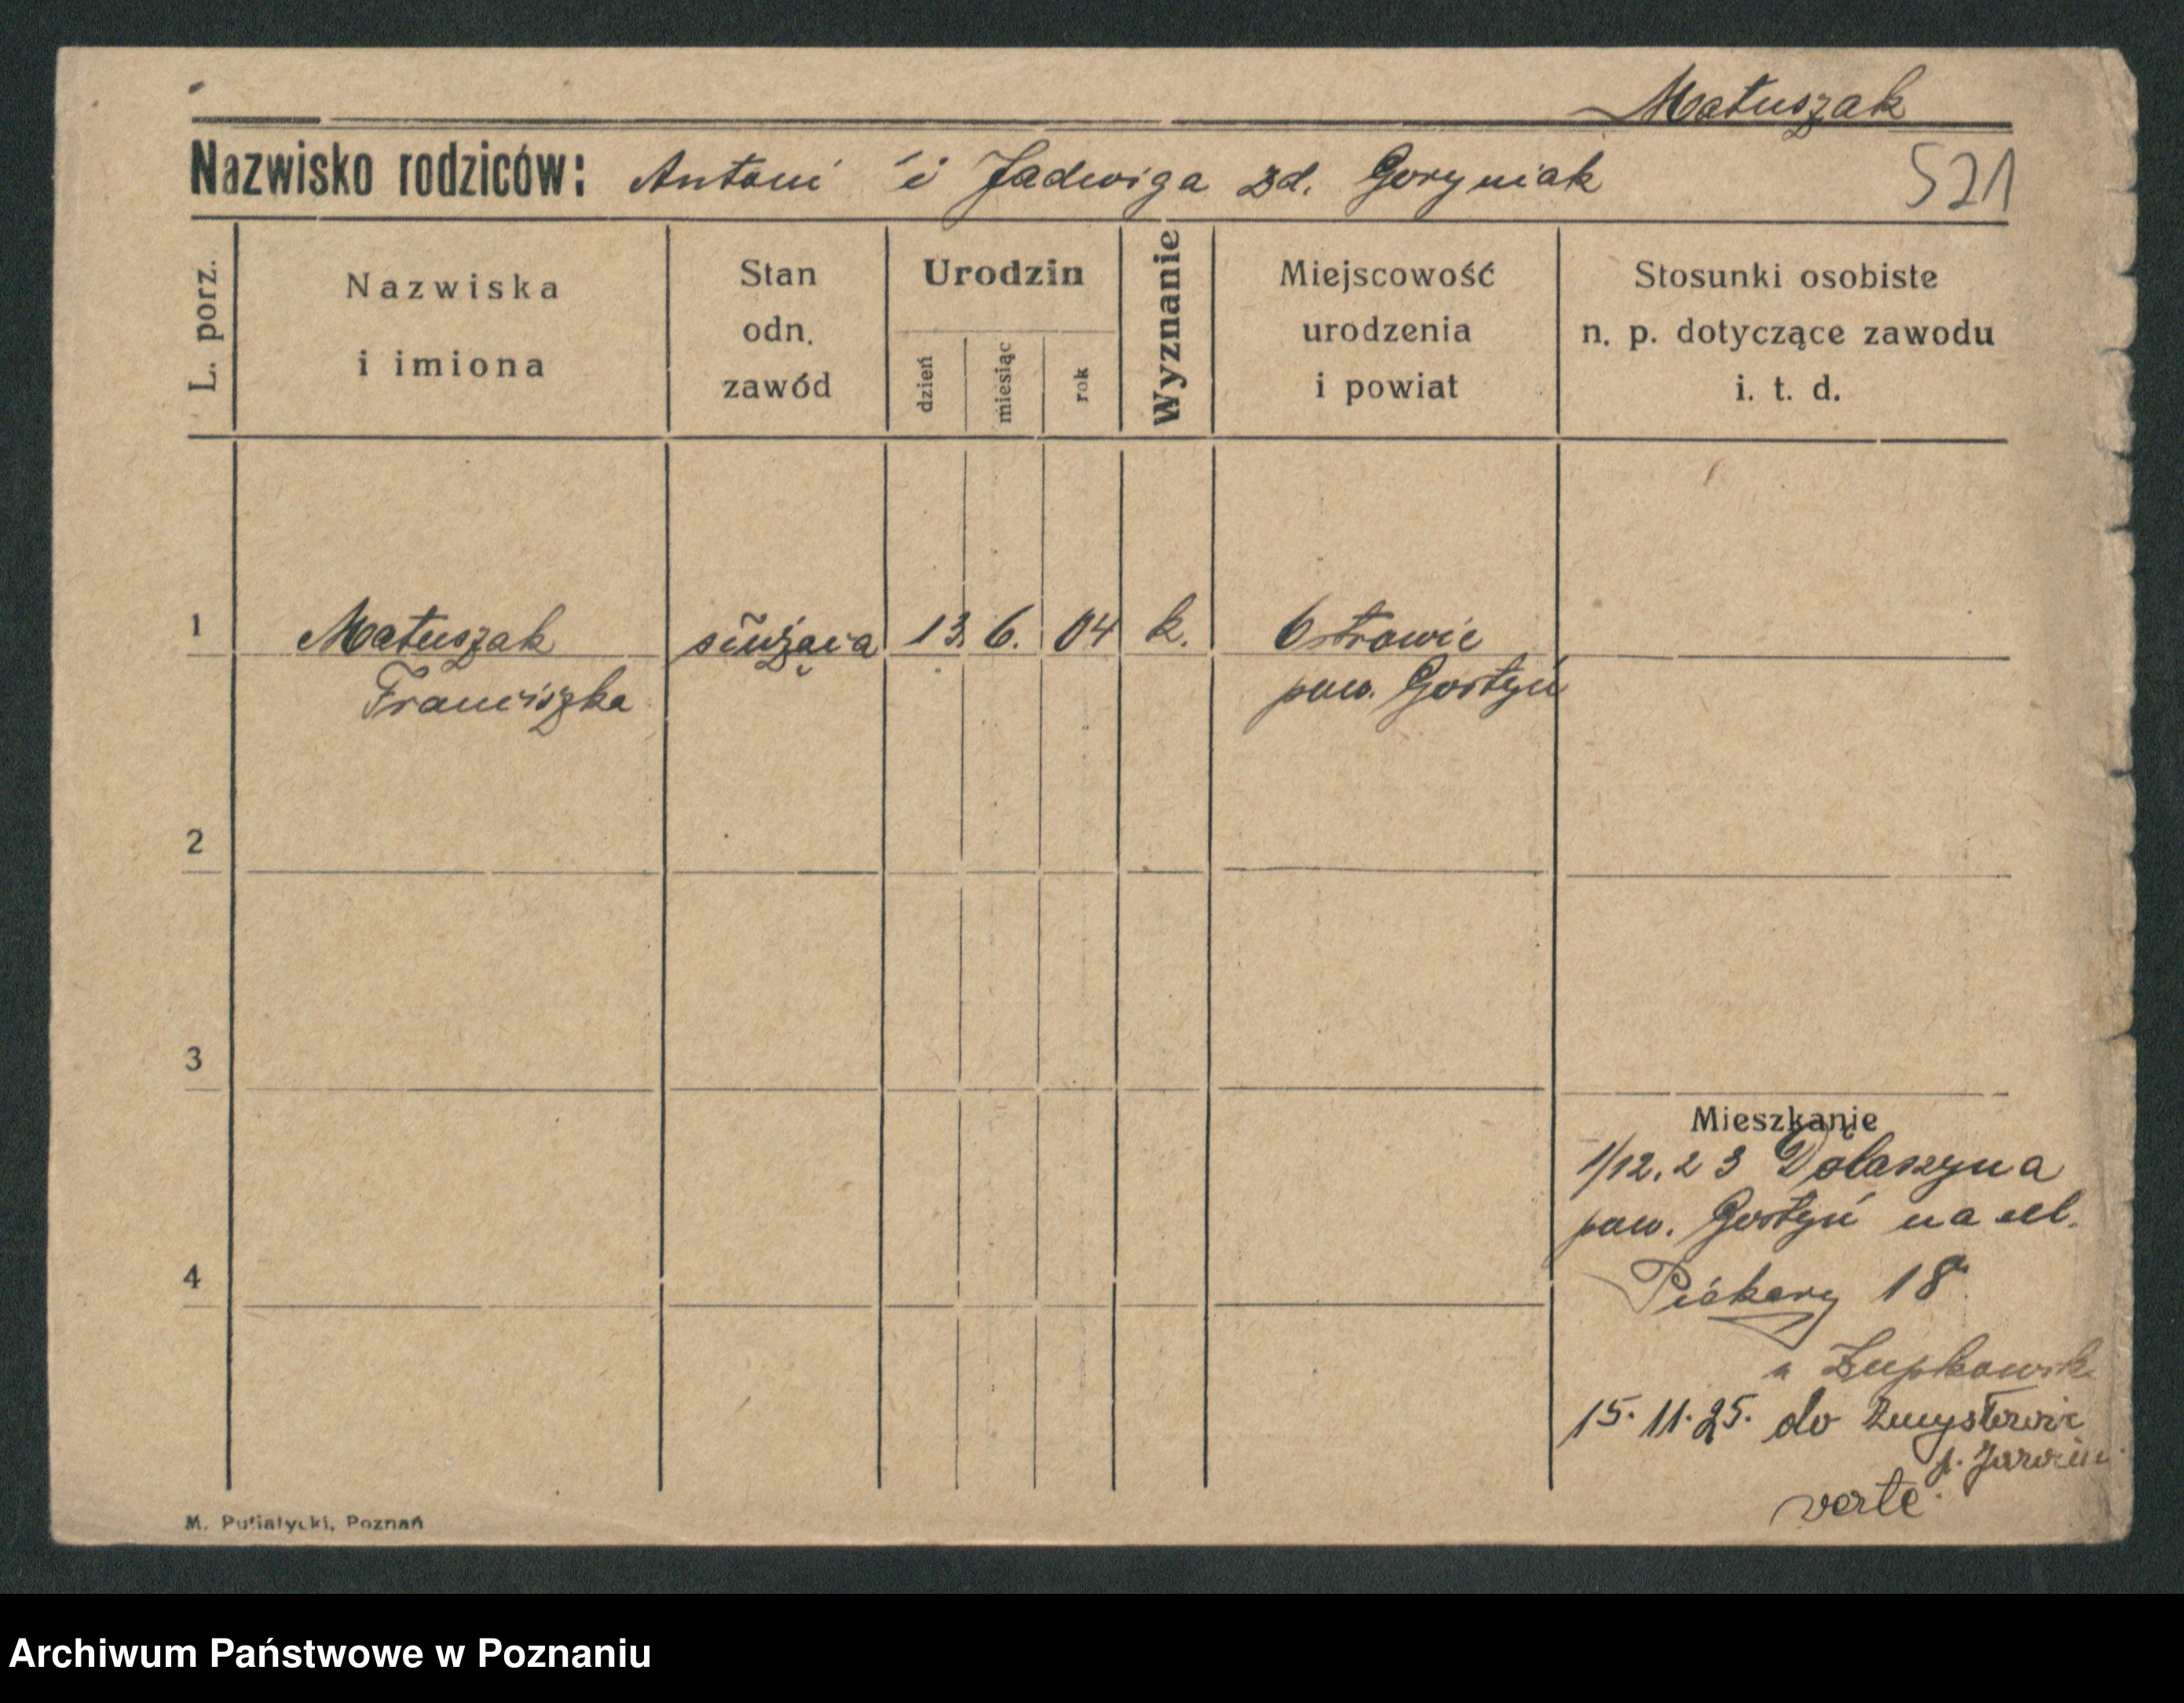 Matuszak
Nazwisko rodziców: Antoni i Jadwiga zd. Goryniak
521
L. porz.
Nazwiska
i imiona
Stan
odn.
zawód
Urodzin
dzień
miesiąc
rok
Wyznanie
Miejscowość
urodzenia
i powiat
Stosunki osobiste
n. p. dotyczące zawodu
i. t. d.
1 Matuszak służąca 13. 6. 04 k. Ostrowie
Franciszka pow. Gostyń
2
3
Mieszkanie
1/12.23 Dolaszyna
pow. Gostyń na ul.
4
Piekary 18
15.11.25. do
verte
M. Putiatycki, Poznań
Archiwum Państwowe w Poznaniu